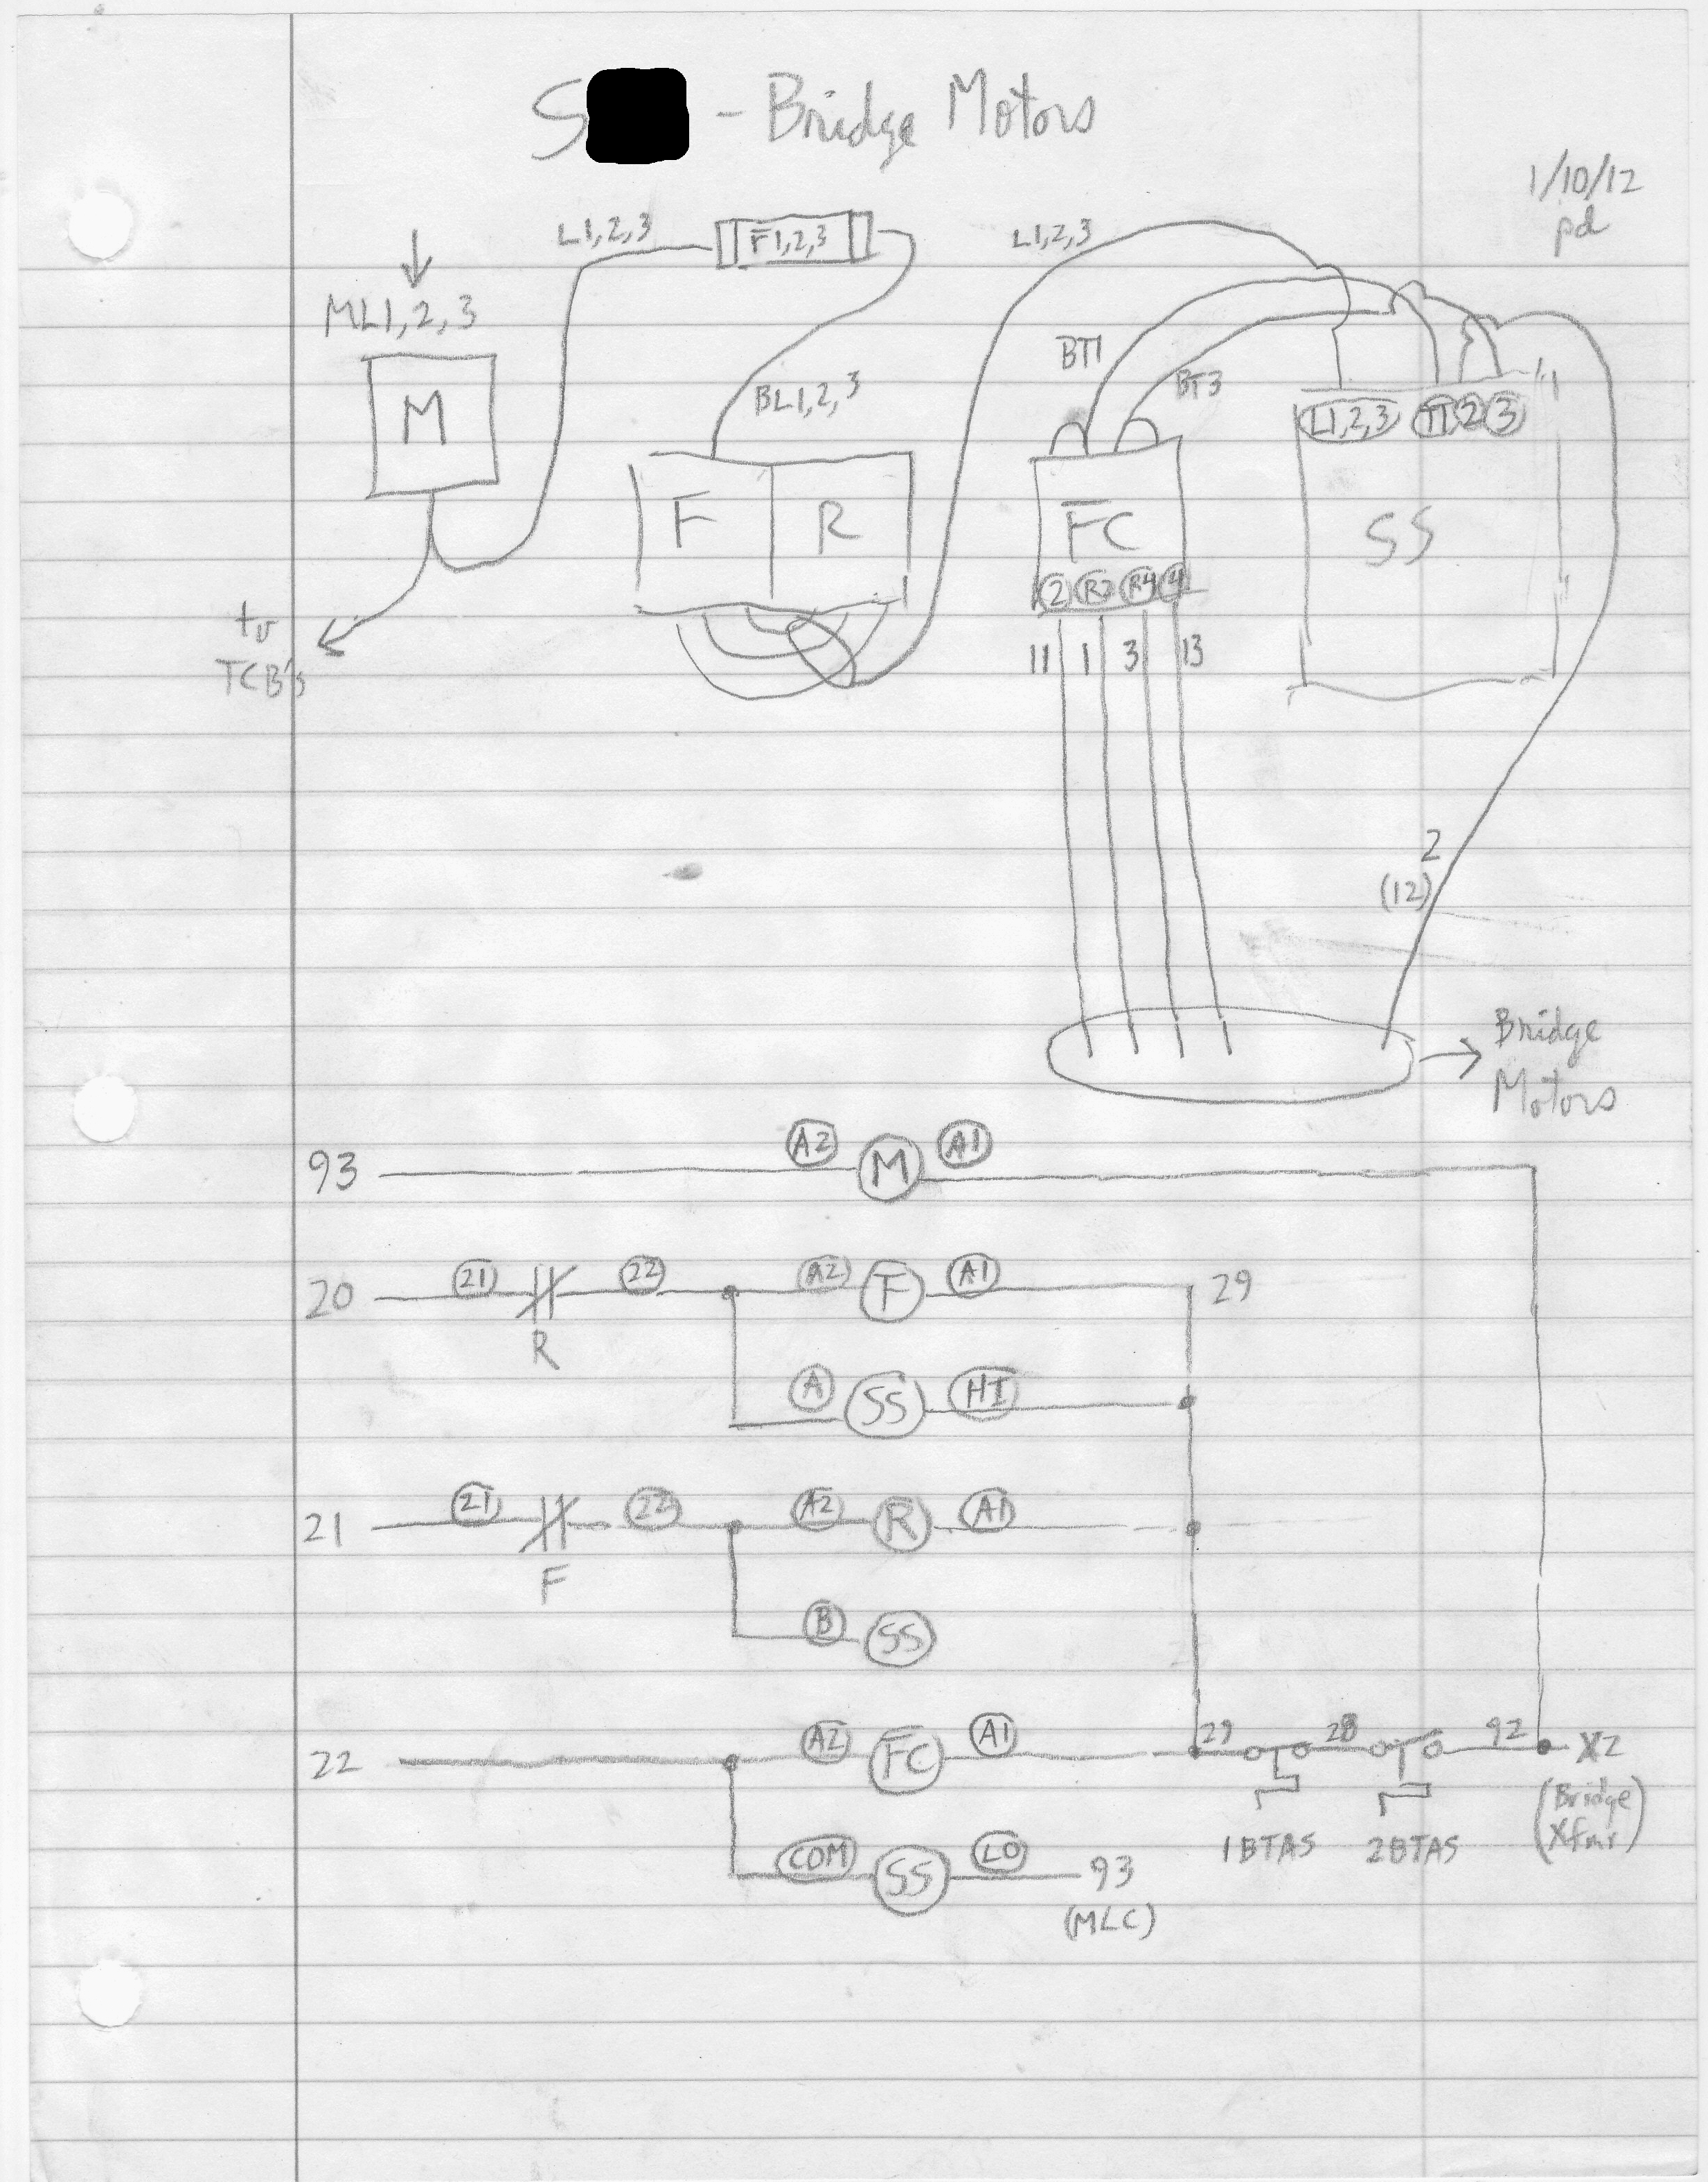 S - Bridge Motors
1/10/12
pd
L1,2,3
F1,2,3
L1,2,3
ML1,2,3
BT1
BT3
BL1,2,3
M
L1,2,3 T1 2 3
F R
FC
SS
2 R2 R4 4
to
TCB's
11 1 3 13
2
(12)
Bridge
Motors
93 A2 M A1
20 21 22 A2 F A1 29
R
A SS HI
21 21 22 A2 R A1
F
B SS
22 A2 FC A1 29 28 92 X2
(Bridge
Xfmr)
1BTAS 2BTAS
COM SS LO 93
(MLC)